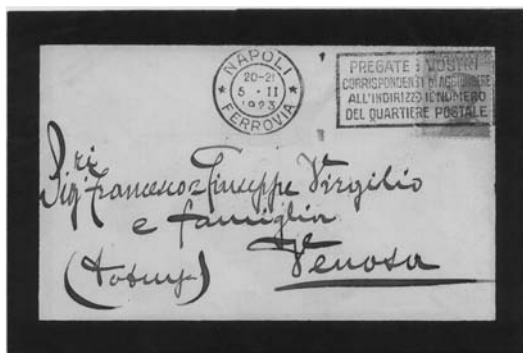 NAPOLI
20-21
5 · II
1923
* FERROVIA *
PREGATE I VOSTRI
CORRISPONDENTI DI AGGIUNGERE
ALL'INDIRIZZO IL NUMERO
DEL QUARTIERE POSTALE
Sigri Francesco e Giuseppe Virgilio
e famiglia
Venosa